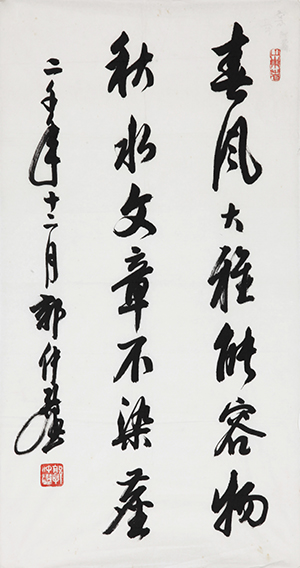 春风大雅能容物
秋水文章不染尘
二千年十二月郭仲